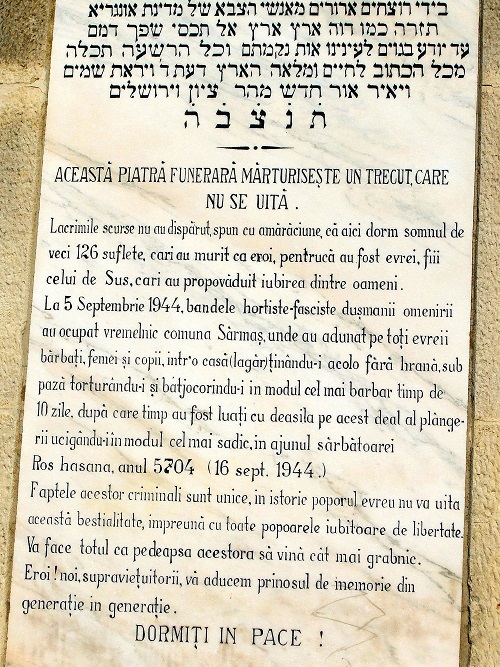 בידי רוצחים ארורים מאנשי הצבא של מדינת אונגריא
תזרה כמו דוה ארץ ארץ אל תכסי שפך דמם
עד יודע בגוים לעינינו אות נקמתם וכל הרשעה תכלה
מכל הכתוב לחיים ומלאה הארץ דעת ד' ויראת שמים
ויאיר אור חדש מהר ציון וירושלים
ת נ צ ב ה
ACEASTĂ PIATRĂ FUNERARĂ MĂRTURISEȘTE UN TRECUT, CARE
NU SE UITĂ .
Lacrimile scurse nu au dispărut, spun cu amărăciune, că aici dorm somnul de
veci 126 suflete, cari au murit ca eroi, pentrucă au fost evrei, fiii
celui de Sus, cari au propovăduit iubirea dintre oameni .
La 5 Septembrie 1944, bandele hortiste-fasciste dușmanii omenirii
au ocupat vremelnic comuna Sărmaș, unde au adunat pe toți evreii
bărbați, femei și copii, intr'o casă (lagăr) ținându-i acolo fără hrană, sub
pază torturându-i și batjocorindu-i in modul cel mai barbar timp de
10 zile, după care timp au fost luați cu deasila pe acest deal al plânge-
rii ucigându-i in modul cel mai sadic, in ajunul sărbătoarei
Ros hasana, anul 5704 (16 sept. 1944.)
Faptele acestor criminali sunt unice, in istoric poporul evreu nu va uita
această bestialitate, impreună cu toate popoarele iubitoare de libertate.
Va face totul ca pedeapsa acestora să vină cât mai grabnic.
Eroi ! noi, supraviețuitorii, vă aducem prinosul de memorie din
generație in generație .
DORMIȚI IN PACE !